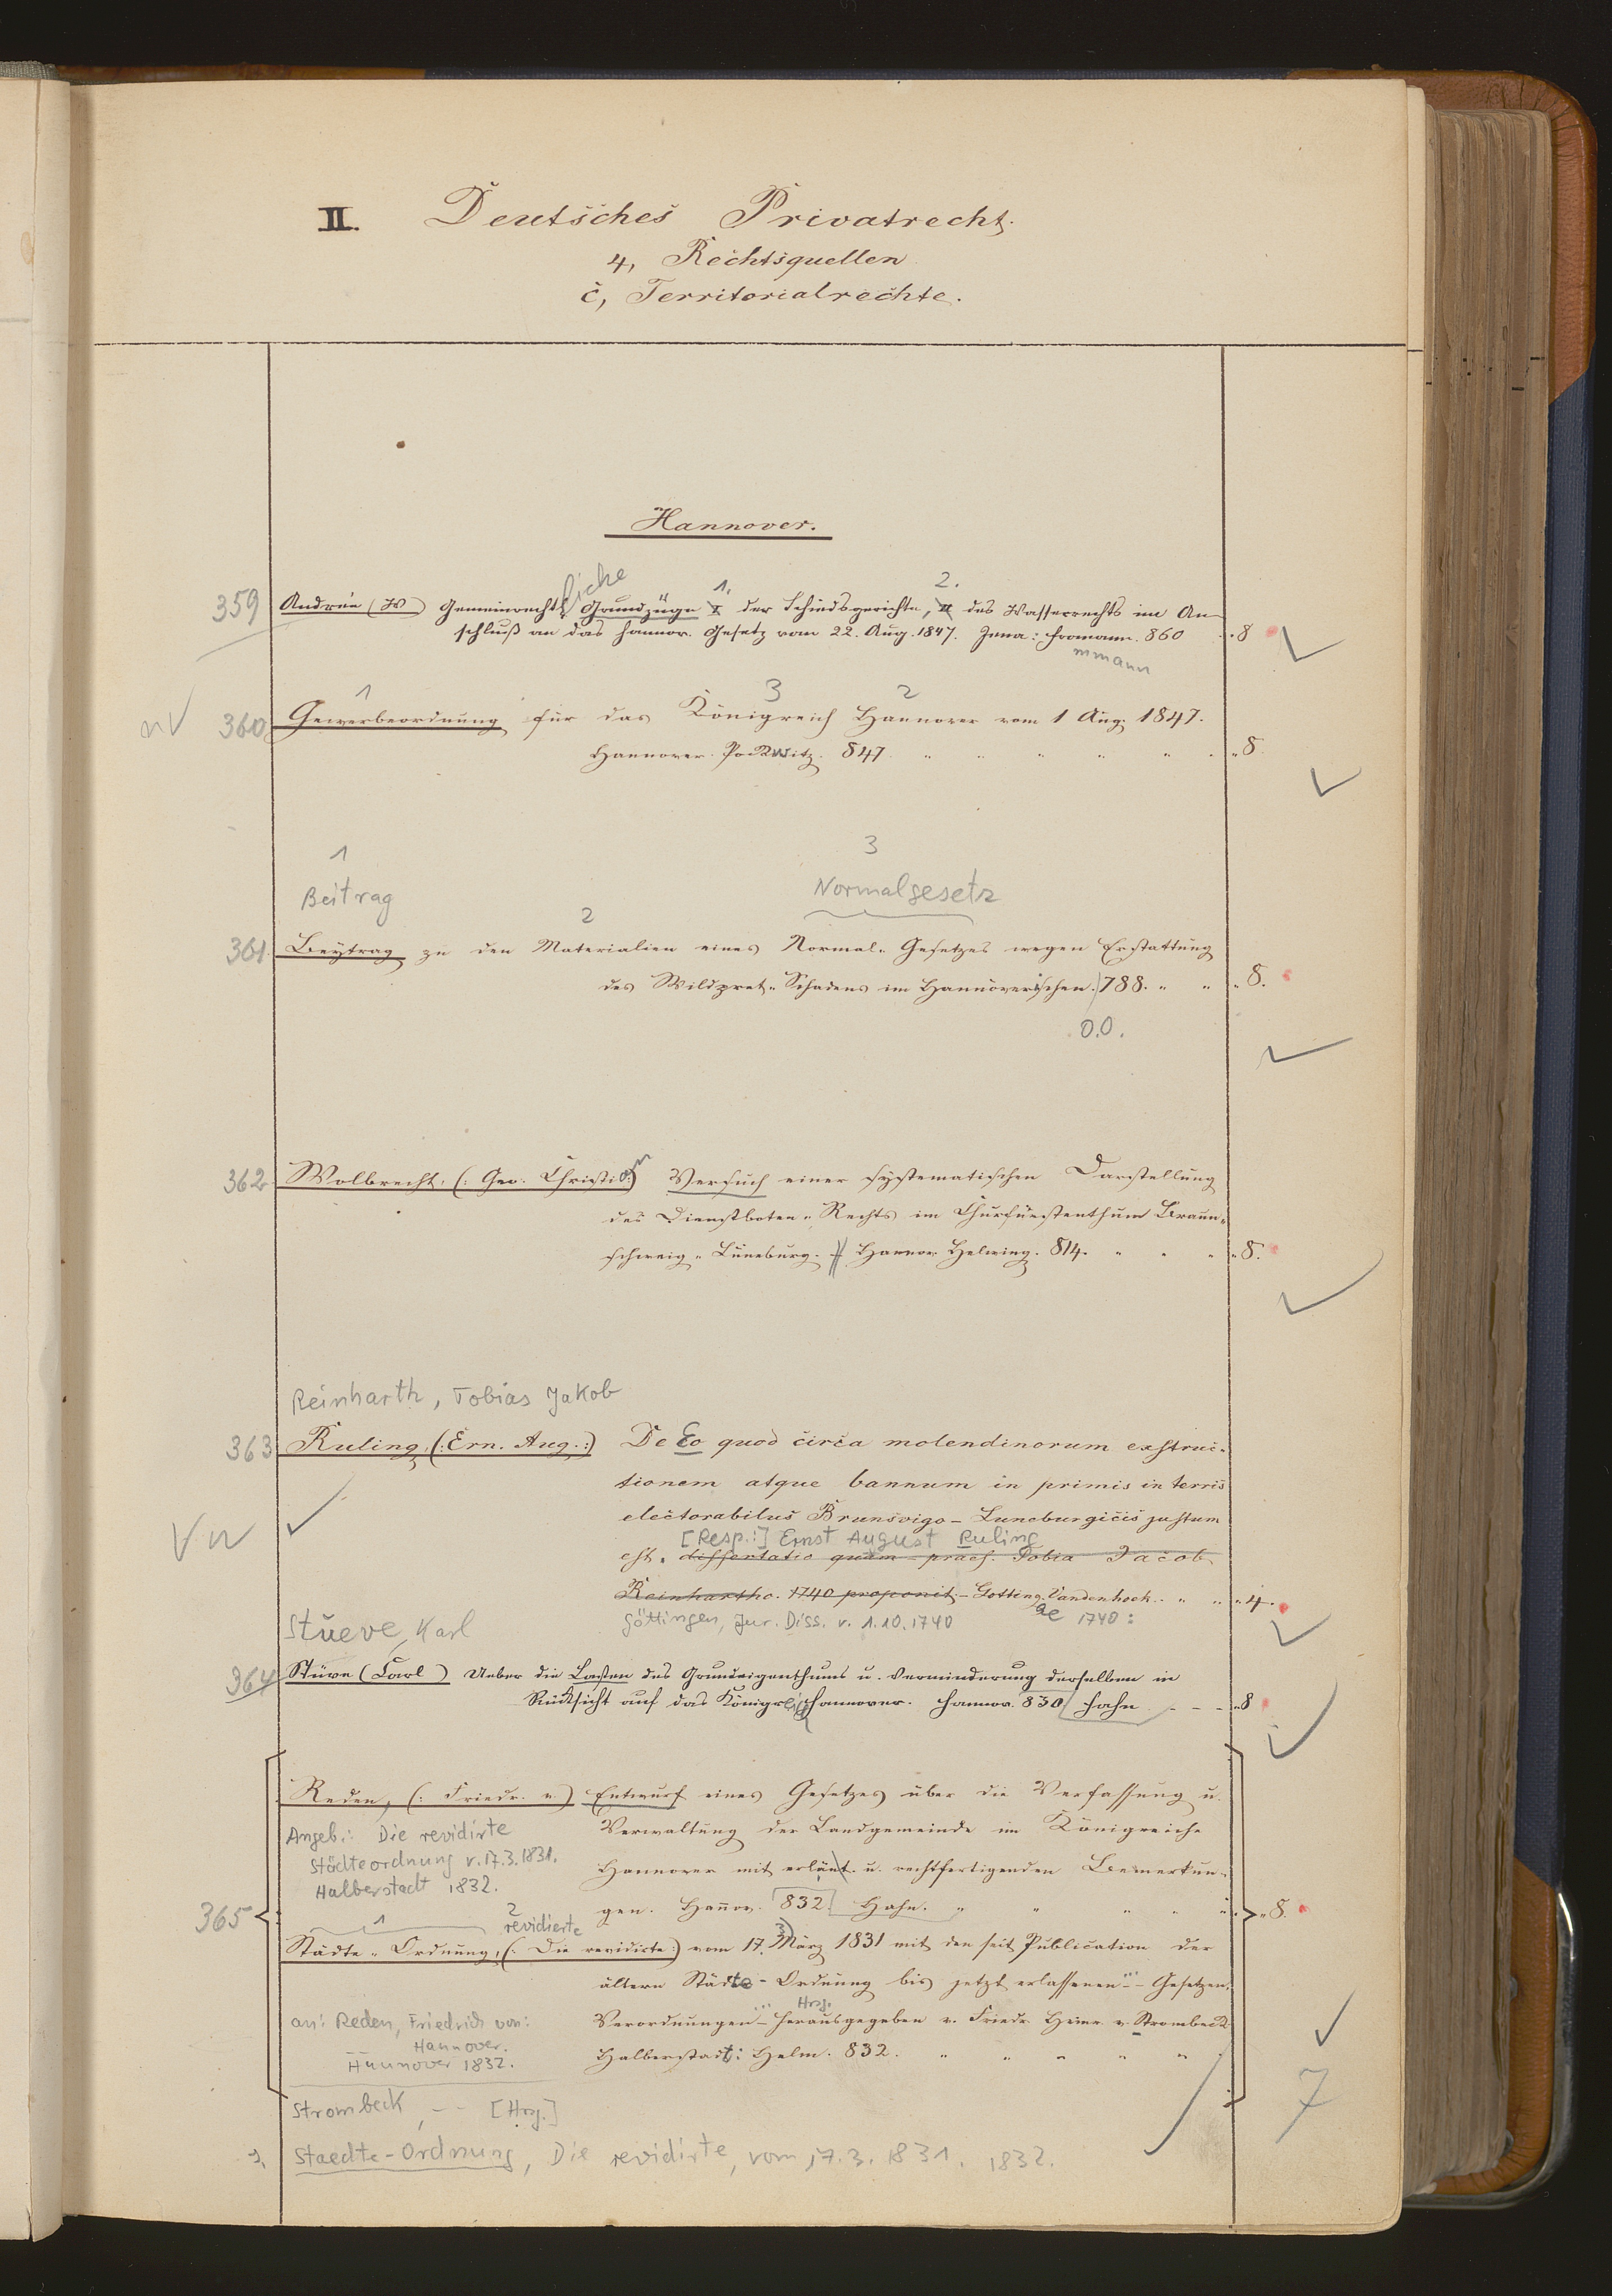 II. Deutsches Privatrecht.
4, Rechtsquellen
c, Territorialrechte.
Hannover.
liche 1. 2.
359 Andrée (W) Gemeinrechtl. Grundzüge I. der Schiedsgerichte, II des Wasserrechts im An-
schluß an das hannov. Gesetz vom 22. Aug. 1847. Jena: Fromann. 860 8
mmann
1 3 2
nv 360 Gewerbeordnung für das Königreich Hannover vom 1 Aug. 1847.
Hannover. Pockwitz. 847. " " " " " " 8.
1 3
Beitrag Normalgesetz
2
361 Beytrag zu den Materialien eines Normal-Gesetzes wegen Erstattung
des Wildpret-Schadens im Hannöverischen. 788. " " " 8.
O.O.
362 Wolbrecht, (: Geo. Christian) Versuch einer systematischen Darstellung
des Dienstboten-Rechts im Churfürstenthum Braun-
schweig-Lüneburg. Hannov. Helwing. 814. " " " 8.
Reinharth, Tobias Jakob
363 Ruling, (: Ern. Aug. :) De Eo quod circa molendinorum exstruc-
tionem atque bannum in primis in terris
electorabilus Brunsvigo-Luneburgicis justum
[Resp.:] Ernst August Ruling
Vn est. dissertatio quam praes. Tobia Jacob
Reinhartho. 1740 proponit - Gotting. Vandenhoek. " " " 4.
Göttingen, Jur. Diss. v. 1.10.1740 ae 1740:
Stueve, Karl
364 Stüve (Carl) Ueber die Lasten des Grundeigenthums u. Verminderung derselben in
Rücksicht auf das Königreich Hannover. Hannov. 830 Hahn - - - 8
Reden, (: Friedr. v.) Entwurf eines Gesetzes über die Verfassung u.
Angeb.: Die revidirte Verwaltung der Landgemeinde im Königreiche
Städteordnung v. 17.3.1831.
Hannover mit erläut. u. rechtfertigenden Bemerkun-
Halberstadt 1832.
365 gen. Hannov. 832. Hahn. " " " " " 8.
1 2 revidierte 3
Städte-Ordnung, (: Die revidirte :) vom 17. März 1831 mit den seit Publication der
ältern Städte-Ordnung bis jetzt erlassenen - Gesetzen,
Hrsg.
an: Reden, Friedrich von: Verordnungen - herausgegeben v. Friedr. Heinr. v. Strombeck
Hannover.
Hannover 1832. Halberstadt: Helm. 832. " " " " "
Strombeck, -- [Hrsg.] 7
Staedte-Ordnung, Die revidirte, vom 17.3.1831. 1832.